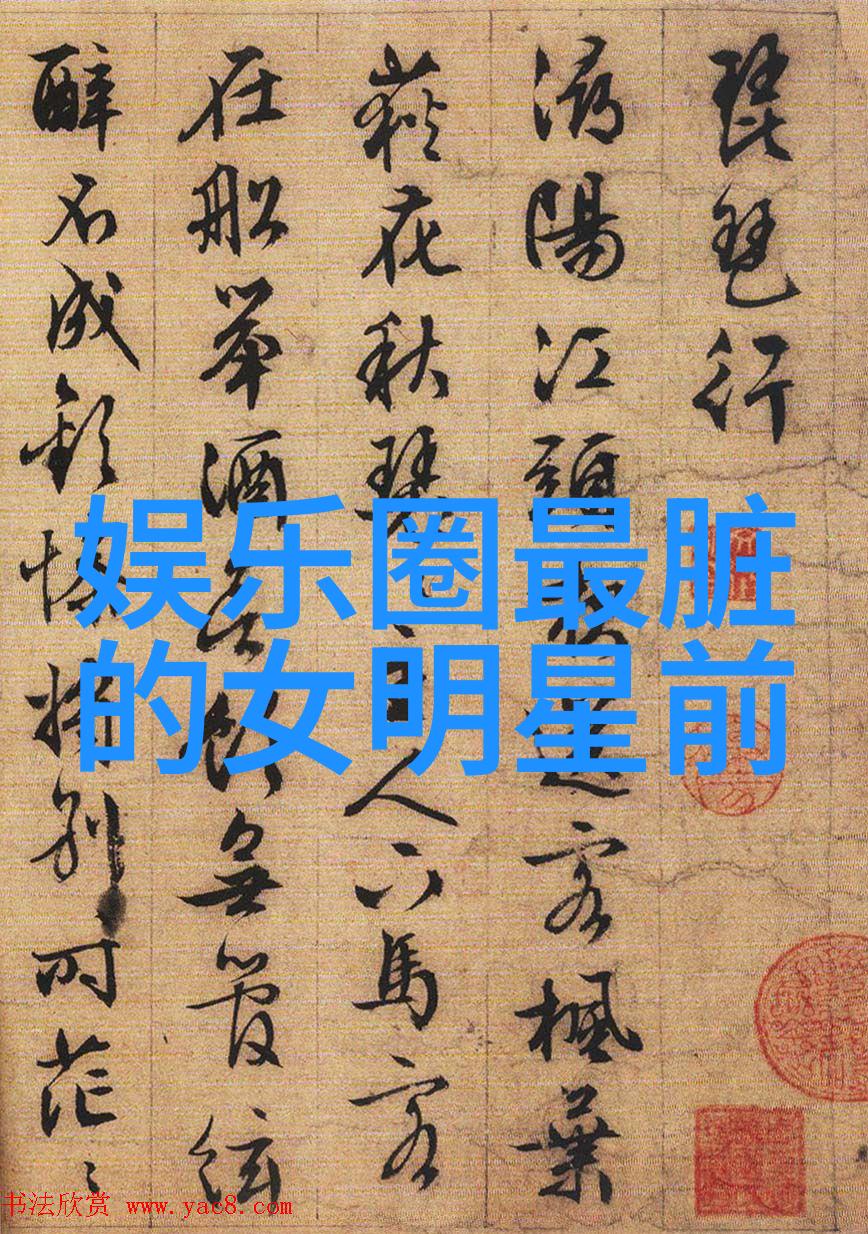 琵琶行
潯陽江頭夜送客楓葉
荻花秋瑟〻主人下馬客
在船舉酒欲飲無管絃
醉不成歡慘將別〻時茫〻
娱乐圈最脏
的女明星前
书法欣赏 www.yac8.com